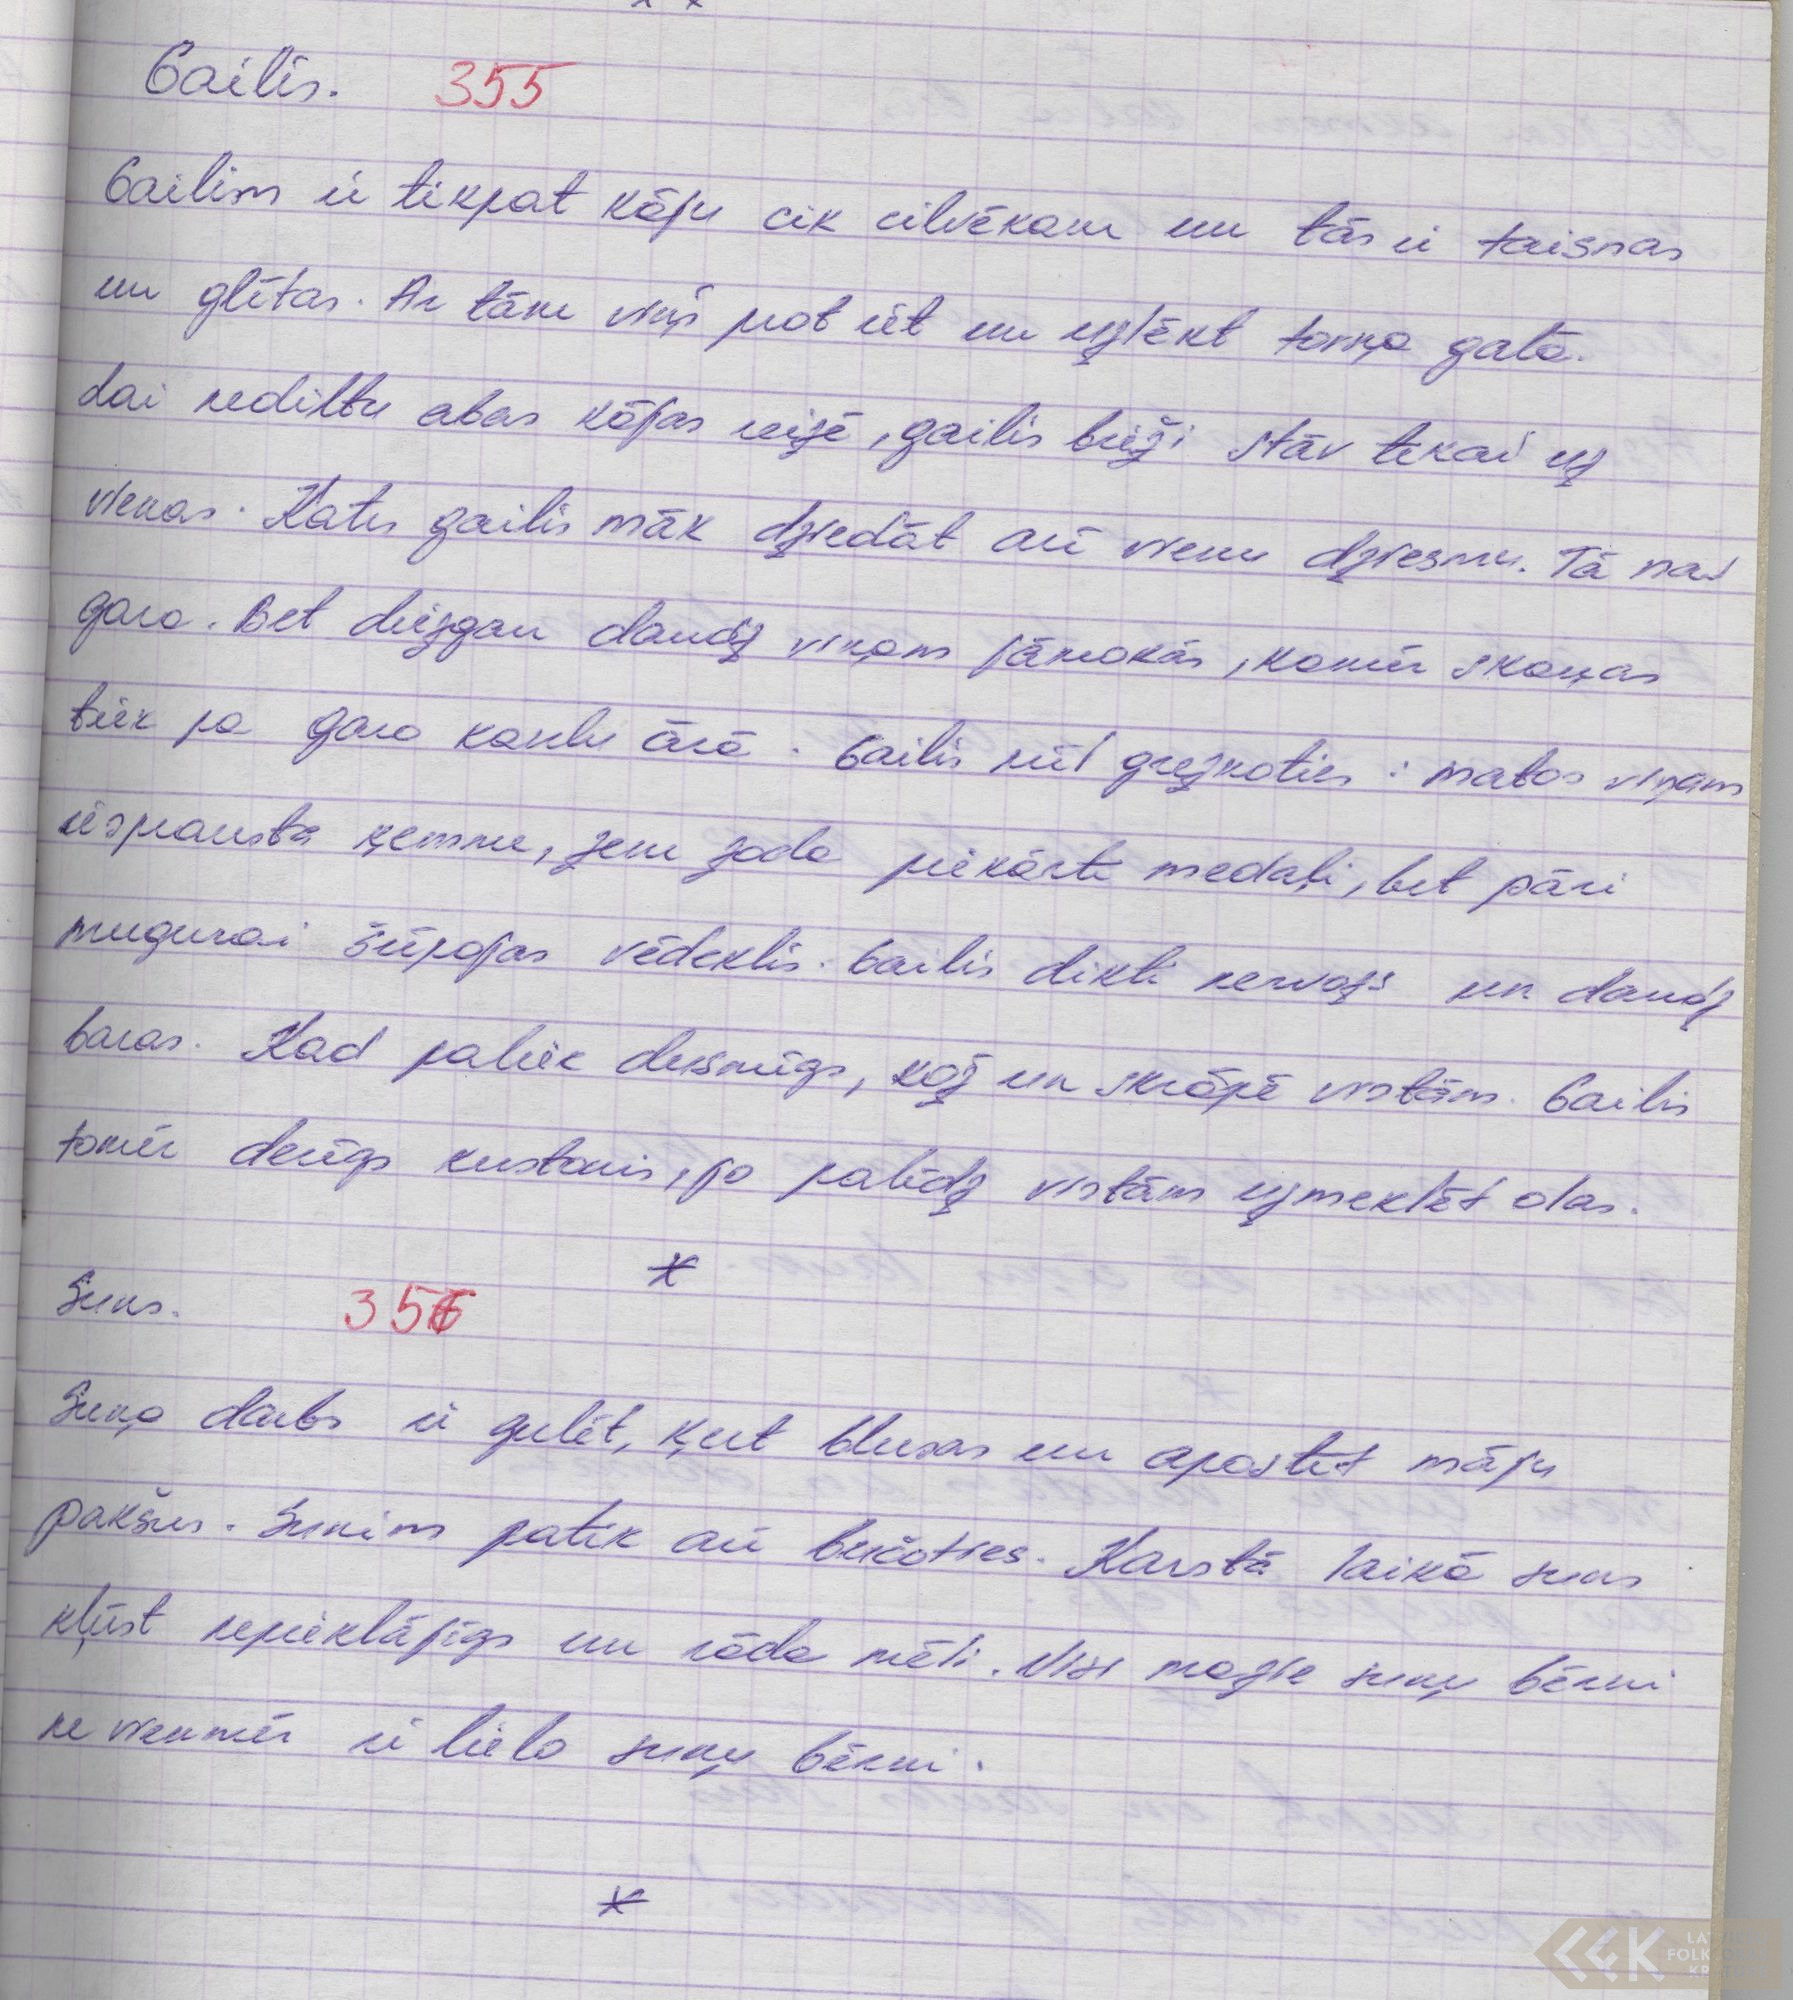 Gailis. 355
Gailim ir tikpat kāju cik cilvēkam un tās ir taisnas
un glītas. Ar tām viņš prot iet un uzlēkt torņa galā.
Lai nediltu abas kājas reizē, gailis bieži stāv tikai uz
vienas. Katrs gailis māk dziedāt arī vienu dziesmu. Tā nav
gara. Bet diezgan daudz viņam jāmokās, kamēr skaņas
tiek pa garo kaklu ārā. Gailis mīl greznoties: matos viņam
iesprausta ķemme, zem zoda piekārti medaļi, bet pāri
mugurai šūpojas vēdeklis. Gailis dikti nervozs un daudz
baras. Kad paliek dusmīgs, kož un skrāpē vistām. Gailis
tomēr derīgs kustonis, jo palīdz vistām uzmeklēt olas.
*
Suns. 356
Suņa darbs ir gulēt, ķert blusas un apostīt māju
pakšus. Sunim patīk arī bučoties. Karstā laikā suns
kļūst nepieklājīgs un rāda mēli. Visi mazie suņu bērni
ne vienmēr ir lielo suņu bērni.
*